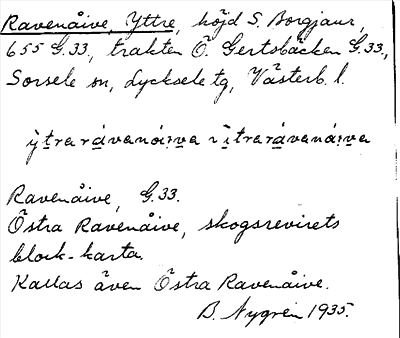 Ravenåive, Yttre, höjd S. Borgjaur,
655 G.33, trakten Ö. Gertsbäcken G.33.,
Sorsele sn, Lycksele tg, Västerb. l.
Ravenåive, G.33.
Östra Ravenåive, skogsrevirets
block-karta.
Kallas även Östra Ravenåive.
B. Nygren 1935.